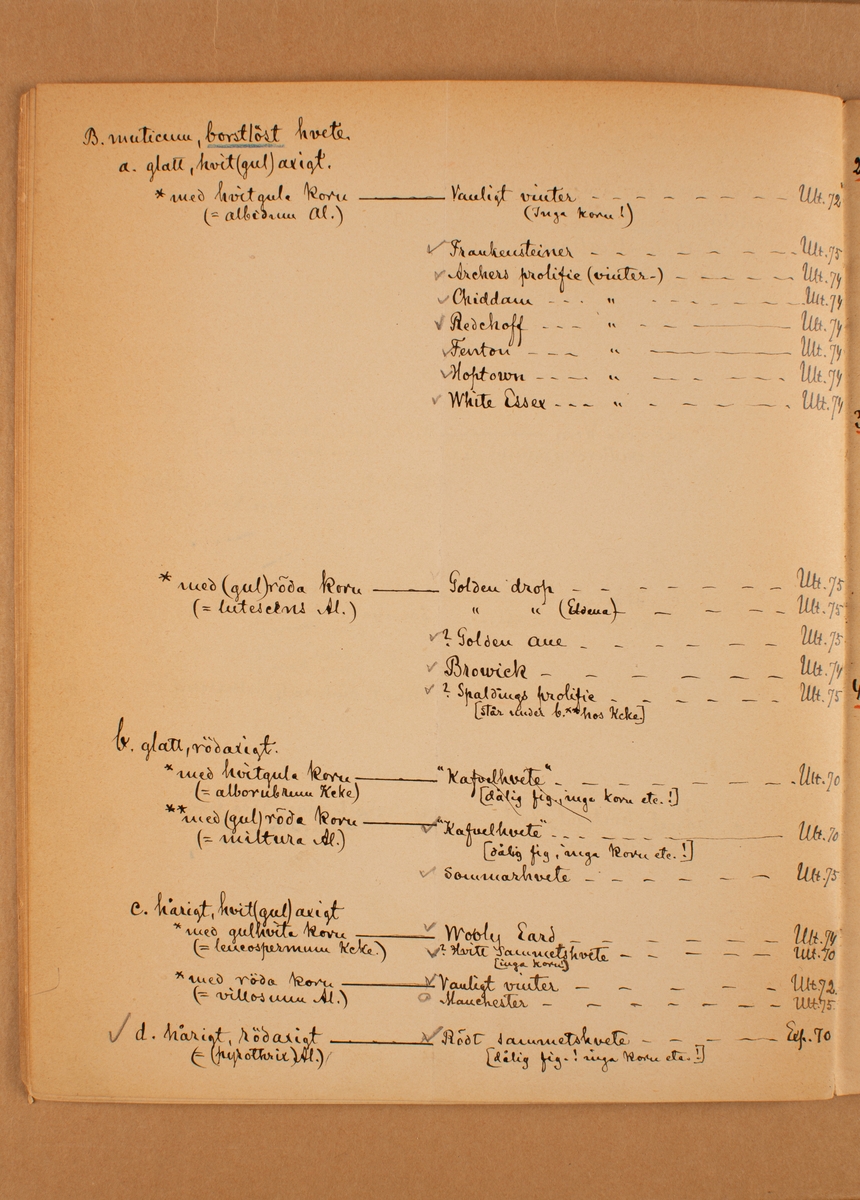 B. muticum, borstlöst hvete.
a. glatt, hvit(gul)axigt.
* med hvitgula korn ——— Vanligt vinter - - - - - - - Utt. 72
(= albidum Al.) (Inga korn!)
✓ Frankensteiner - - - - - - - Utt. 75
✓ Archers prolific (vinter-) - - - - - Utt. 74
✓ Chiddam - - - " - - - - - - Utt. 74
✓ Redchoff - - - " - - ——— Utt. 74
✓ Fenton - - - " ——— Utt. 74
✓ Hoptown - - - " - - - - - Utt. 74
✓ White Essex - - - " - - - - - Utt. 74
* med (gul)röda korn ——— Golden drop - - - - - - Utt. 75
(= lutescens Al.) " " (Eldena) - - - - Utt. 75
✓ ? Golden aue - - - - - Utt. 75
✓ Browick - - - - - - Utt. 74
✓ ? Spaldings prolific - - - - - Utt. 75
[står under b.** hos Kcke.]
b. glatt, rödaxigt.
* med hvitgula korn ——— "Kafvelhvete" - - - - - - - Utt. 70
(= alborubrum Kcke) [dålig fig., inga korn etc.!]
** med (gul)röda korn ——— ✓ "Kafvelhvete" - - - ——— Utt. 70
(= miltura Al.) [dålig fig., inga korn etc.!]
✓ Sommarhvete - - - - - - Utt. 75
c. hårigt, hvit(gul)axigt
* med gulhvita korn ——— ✓ Wooly Eard - - - - - - Utt. 74
(= leucospermum Kcke.) ✓ ? Hvitt Sammetshvete - - - - - Utt. 70
[inga korn]
* med röda korn ——— ✓ Vanligt vinter - - - - - - Utt. 72.
(= villosum Al.) o Manchester - - - - - - Utt. 75.
✓ d. hårigt, rödaxigt ——— ✓ Rödt sammetshvete - - - - Exp. 70
(= (pyrothrix) Al.) [dålig fig.! inga korn etc.!]